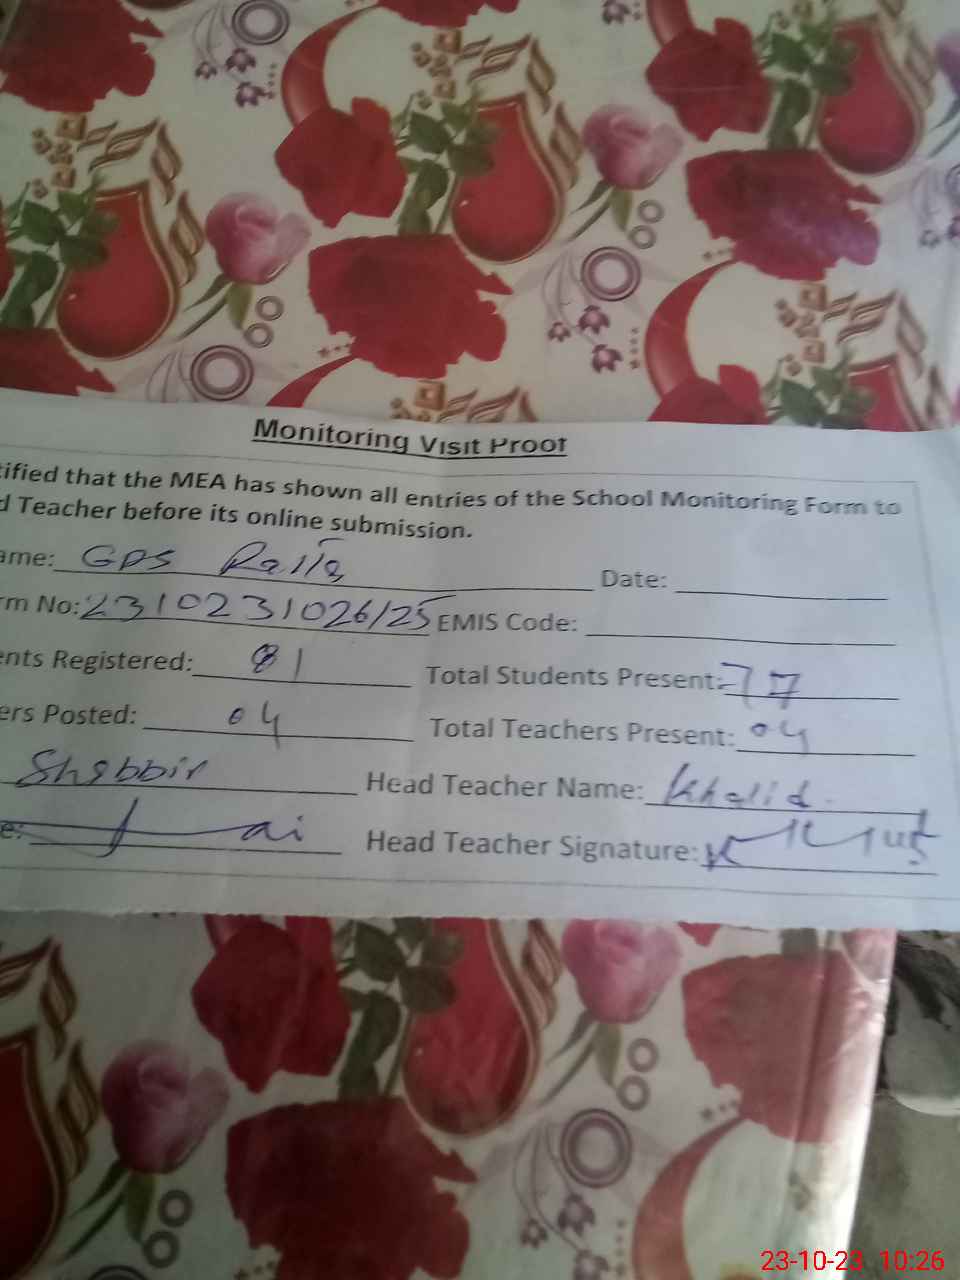 Monitoring Visit Proof
tified that the MEA has shown all entries of the School Monitoring Form to
d Teacher before its online submission.
ame: GPS Date:
rm No: 2310231026/25 EMIS Code:
ents Registered: 81 Total Students Present: 77
ers Posted: 04 Total Teachers Present: 04
Shabbir Head Teacher Name: Khalid
e: Head Teacher Signature:
23-10-23 10:26